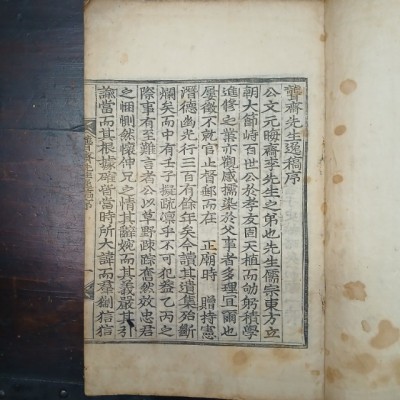 聾齋先生逸稿序
公文元晦齋李先生之弟也先生儒宗東方立
朝大節峙百世公於孝友因天植而劬躬積學
進修之業亦觀感擩染於父事者多理宜爾也
屢徵不就官止督郵而在 正廟時 贈持憲
潛德幽光行三百有餘年矣今讀其遺集殆斷
爛矣而中有壬子擬疏凜乎不可犯盖乙丙之
際事有至難言者公以草野疎踪奮然效忠君
之悃惻然懷伸兄之情其辭婉而其義嚴其引
諭當而其根據確皆當時所大諱而羣劊狺狺
聾齋先生逸稿序 一